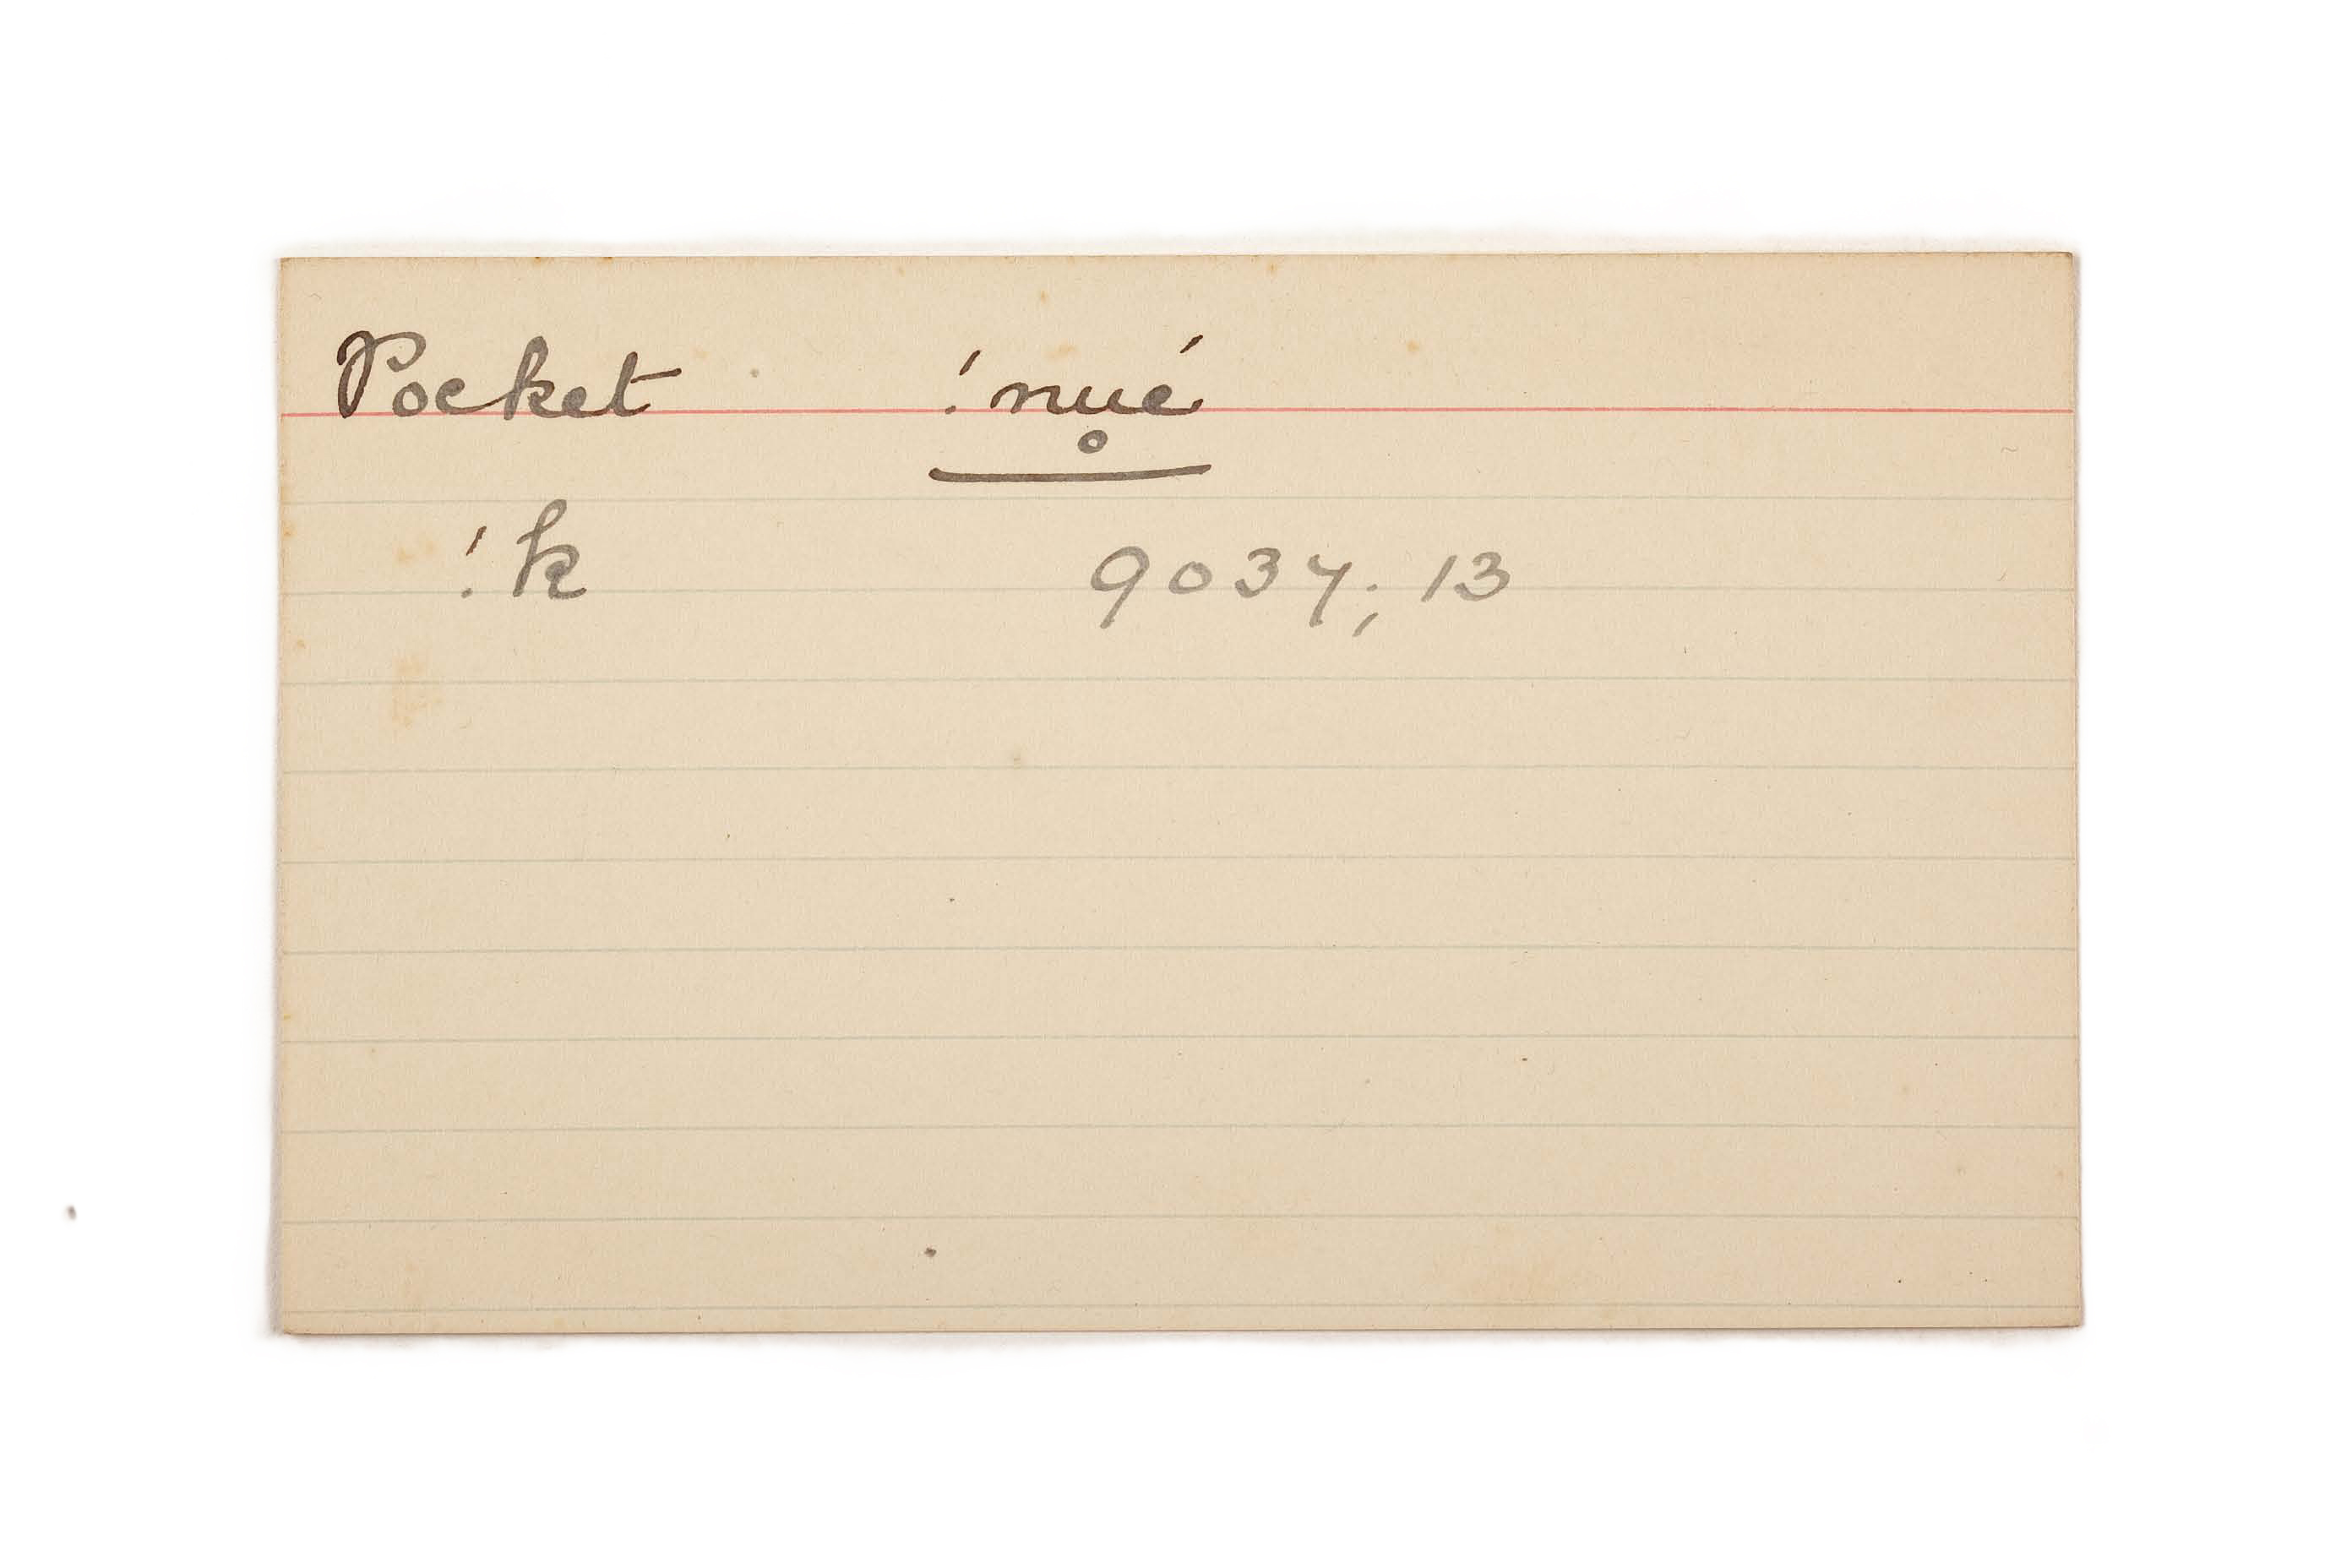 Pocket !nu̥é
!k 9037; 13